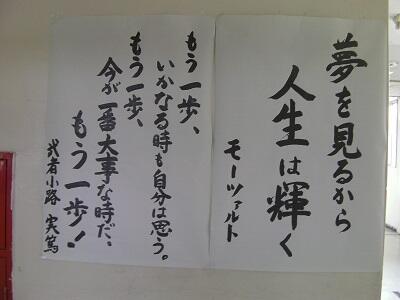 夢を見るから
人生は輝く
モーツァルト
もう一歩、
いかなる時も自分は思う。
もう一歩、
今が一番大事な時だ、
もう一歩!
武者小路 実篤